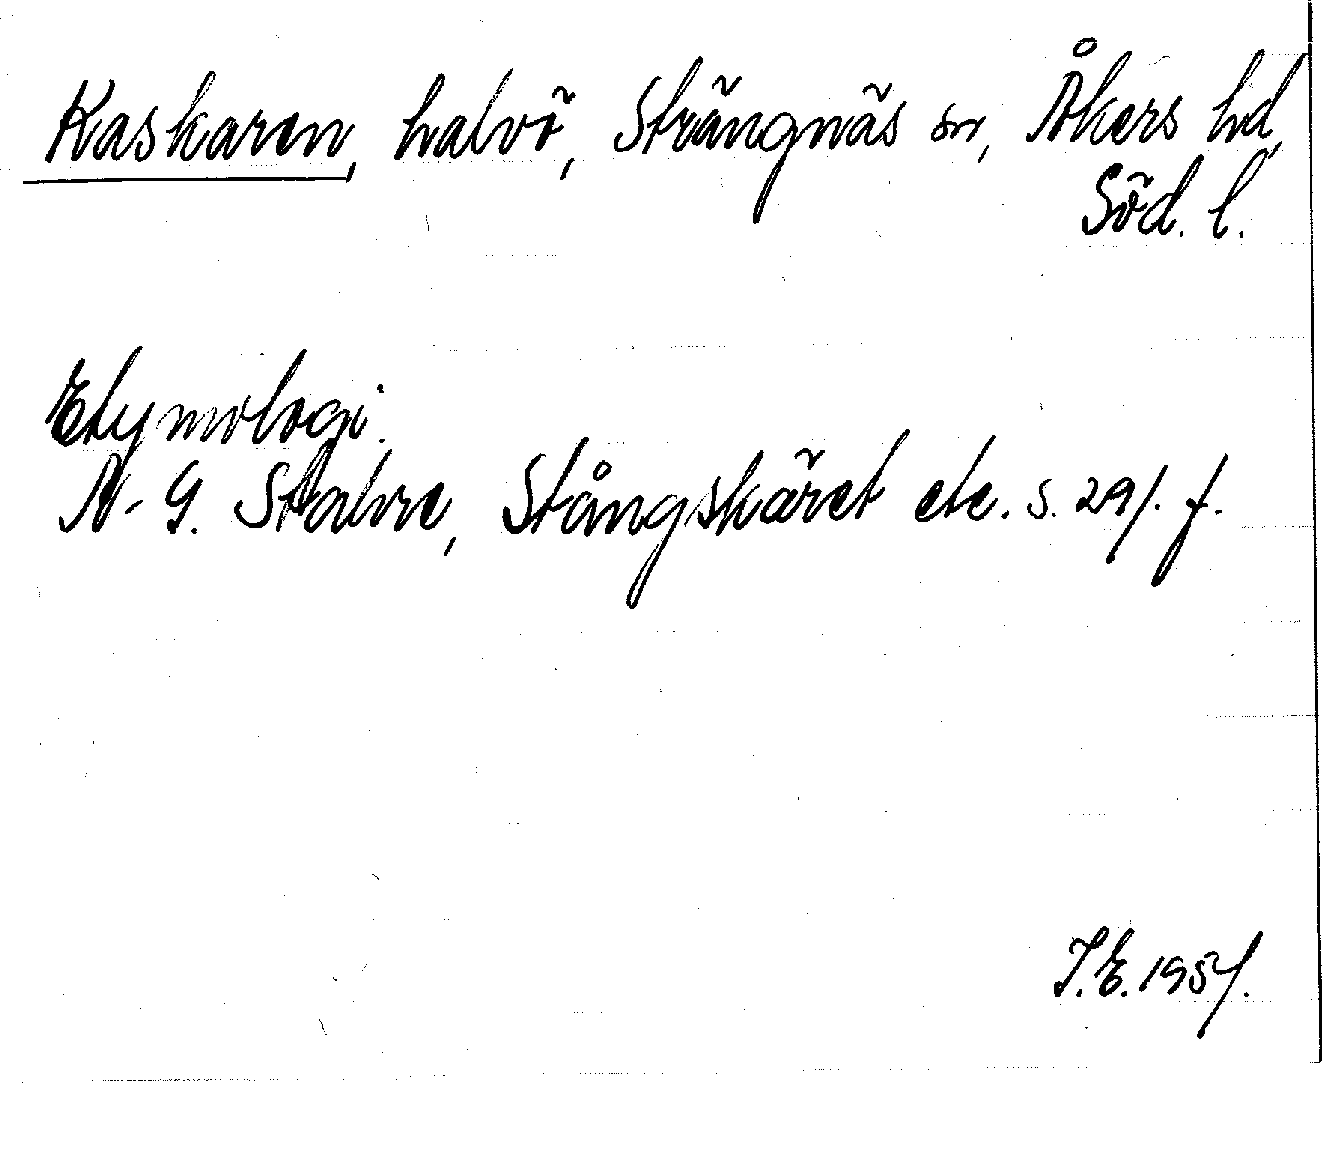 Kaskaren, halvö, Strängnäs sn, Åkers hd,
Söd. l.
Etymologi.
N-G. Stahre, Stångskäret etc. s. 291. f.
J.E. 1957.